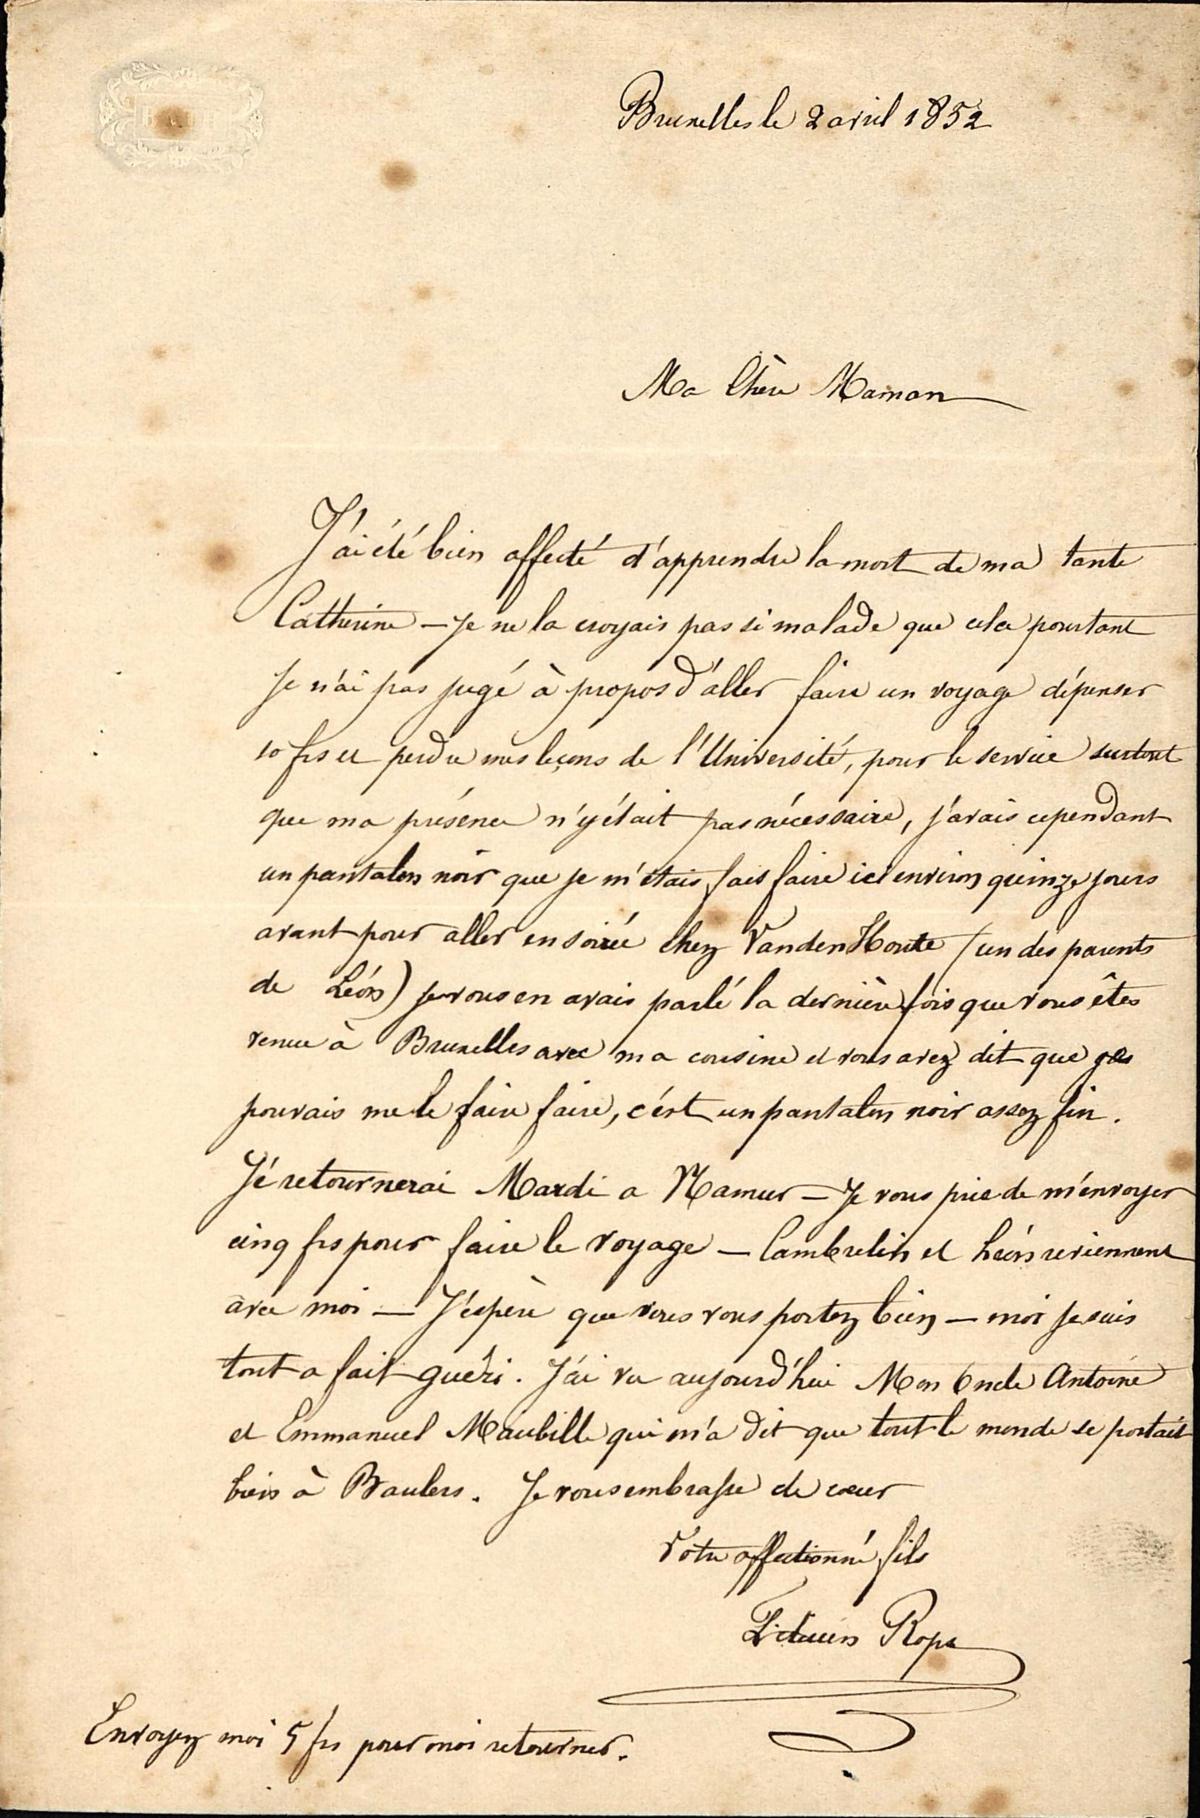 Bruxelles le 2 avril 1852
Ma Chère Maman
J'ai été bien affecté d'apprendre la mort de ma tante
Catherine – Je ne la croyais pas si malade que cela pourtant
Je n'ai pas jugé à propos d'aller faire un voyage dépenser
10 frs et perdre mes leçons de l'Université, pour le service surtout
que ma présence n'y était pas nécessaire, j'avais cependant
un pantalon noir que je m'étais fait faire ici environ quinze jours
avant pour aller en soirée chez VandenHoute (un des parents
de Léon) je vous en avais parlé la dernière fois que vous êtes
venue à Bruxelles avec ma cousine et vous avez dit que je
pouvais me le faire faire, c'est un pantalon noir assez fin.
Je retournerai Mardi a Namur – Je vous prie de m'envoyer
cinq frs pour faire le voyage – Cambrelin et Léon reviennent
avec moi – J'espère que vous vous portez bien – moi je suis
tout a fait guéri. J'ai vu aujourd'hui Mon Oncle Antoine
et Emmanuel Maubille qui m'a dit que tout le monde se portait
bien à Baulers. Je vous embrasse de cœur
Votre affectionné fils
Rops
Envoyez moi 5 frs pour moi retourner.